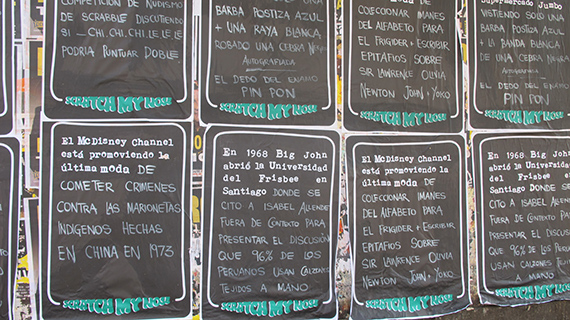 COMPETICIÓN DE NUDISMO
DE SCRABBLE DISCUTIENDO
SI __CHI, CHI, CHI, LE, LE, LE
PODRÍA PUNTUAR DOBLE.
SCRATCH MY NOSE
BARBA POSTIZA AZUL
+ UNA RAYA BLANCA,
ROBADO UNA CEBRA NEGRA
AUTOGRAFIADA
EL DEDO DEL ENANO
PIN PON
SCRATCH MY NOSE
COLECCIONAR IMANES
DEL ALFABETO PARA
EL FRIGIDER + ESCRIBIR
EPITAFIOS SOBRE
SIR LAWRENCE OLIVIA
NEWTON JOHN + YOKO
SCRATCH MY NOSE
Supermercado Jumbo
VISTIENDO SOLO UNA
BARBA POSTIZA AZUL
+ LA BANDA BLANCA
DE UNA CEBRA
AUTOGRAFIADA
EL DEDO DEL ENAMO
PIN PON
SCRATCH MY NOSE
El McDisney Channel
está promoviendo la
última moda DE
COMETER CRIMENES
CONTRA LAS MARIONETAS
INDIGENOS HECHAS
EN CHINA EN 1973
SCRATCH MY NOSE
En 1968 Big John
abrió la Universidad
del Frisbee en
Santiago DONDE SE
CITO A ISABEL ALLENDE
FUERA DE CONTEXTO PARA
PRESENTAR EL DISCUSIÓN
QUE 96% DE LOS
PERUANOS USAN CALZONES
TEJIDOS A MANO
SCRATCH MY NOSE
El McDisney Channel
está promoviendo la
última moda DE
COLECCIONAR IMANES
DEL ALFABETO PARA
EL FRIGIDER + ESCRIBIR
EPITAFIOS SOBRE
SIR LAWRENCE OLIVIA
NEWTON JOHN + YOKO
SCRATCH MY NOSE
En 1968 Big John
abrió la Universidad
del Frisbee en
Santiago DONDE SE
CITO A ISABEL ALLENDE
FUERA DE CONTEXTO PA
PRESENTAR EL DISCUSI
QUE 96% DE LOS PERUA
USAN CALZONES TEJID
A MANO
SCRATCH MY NOSE